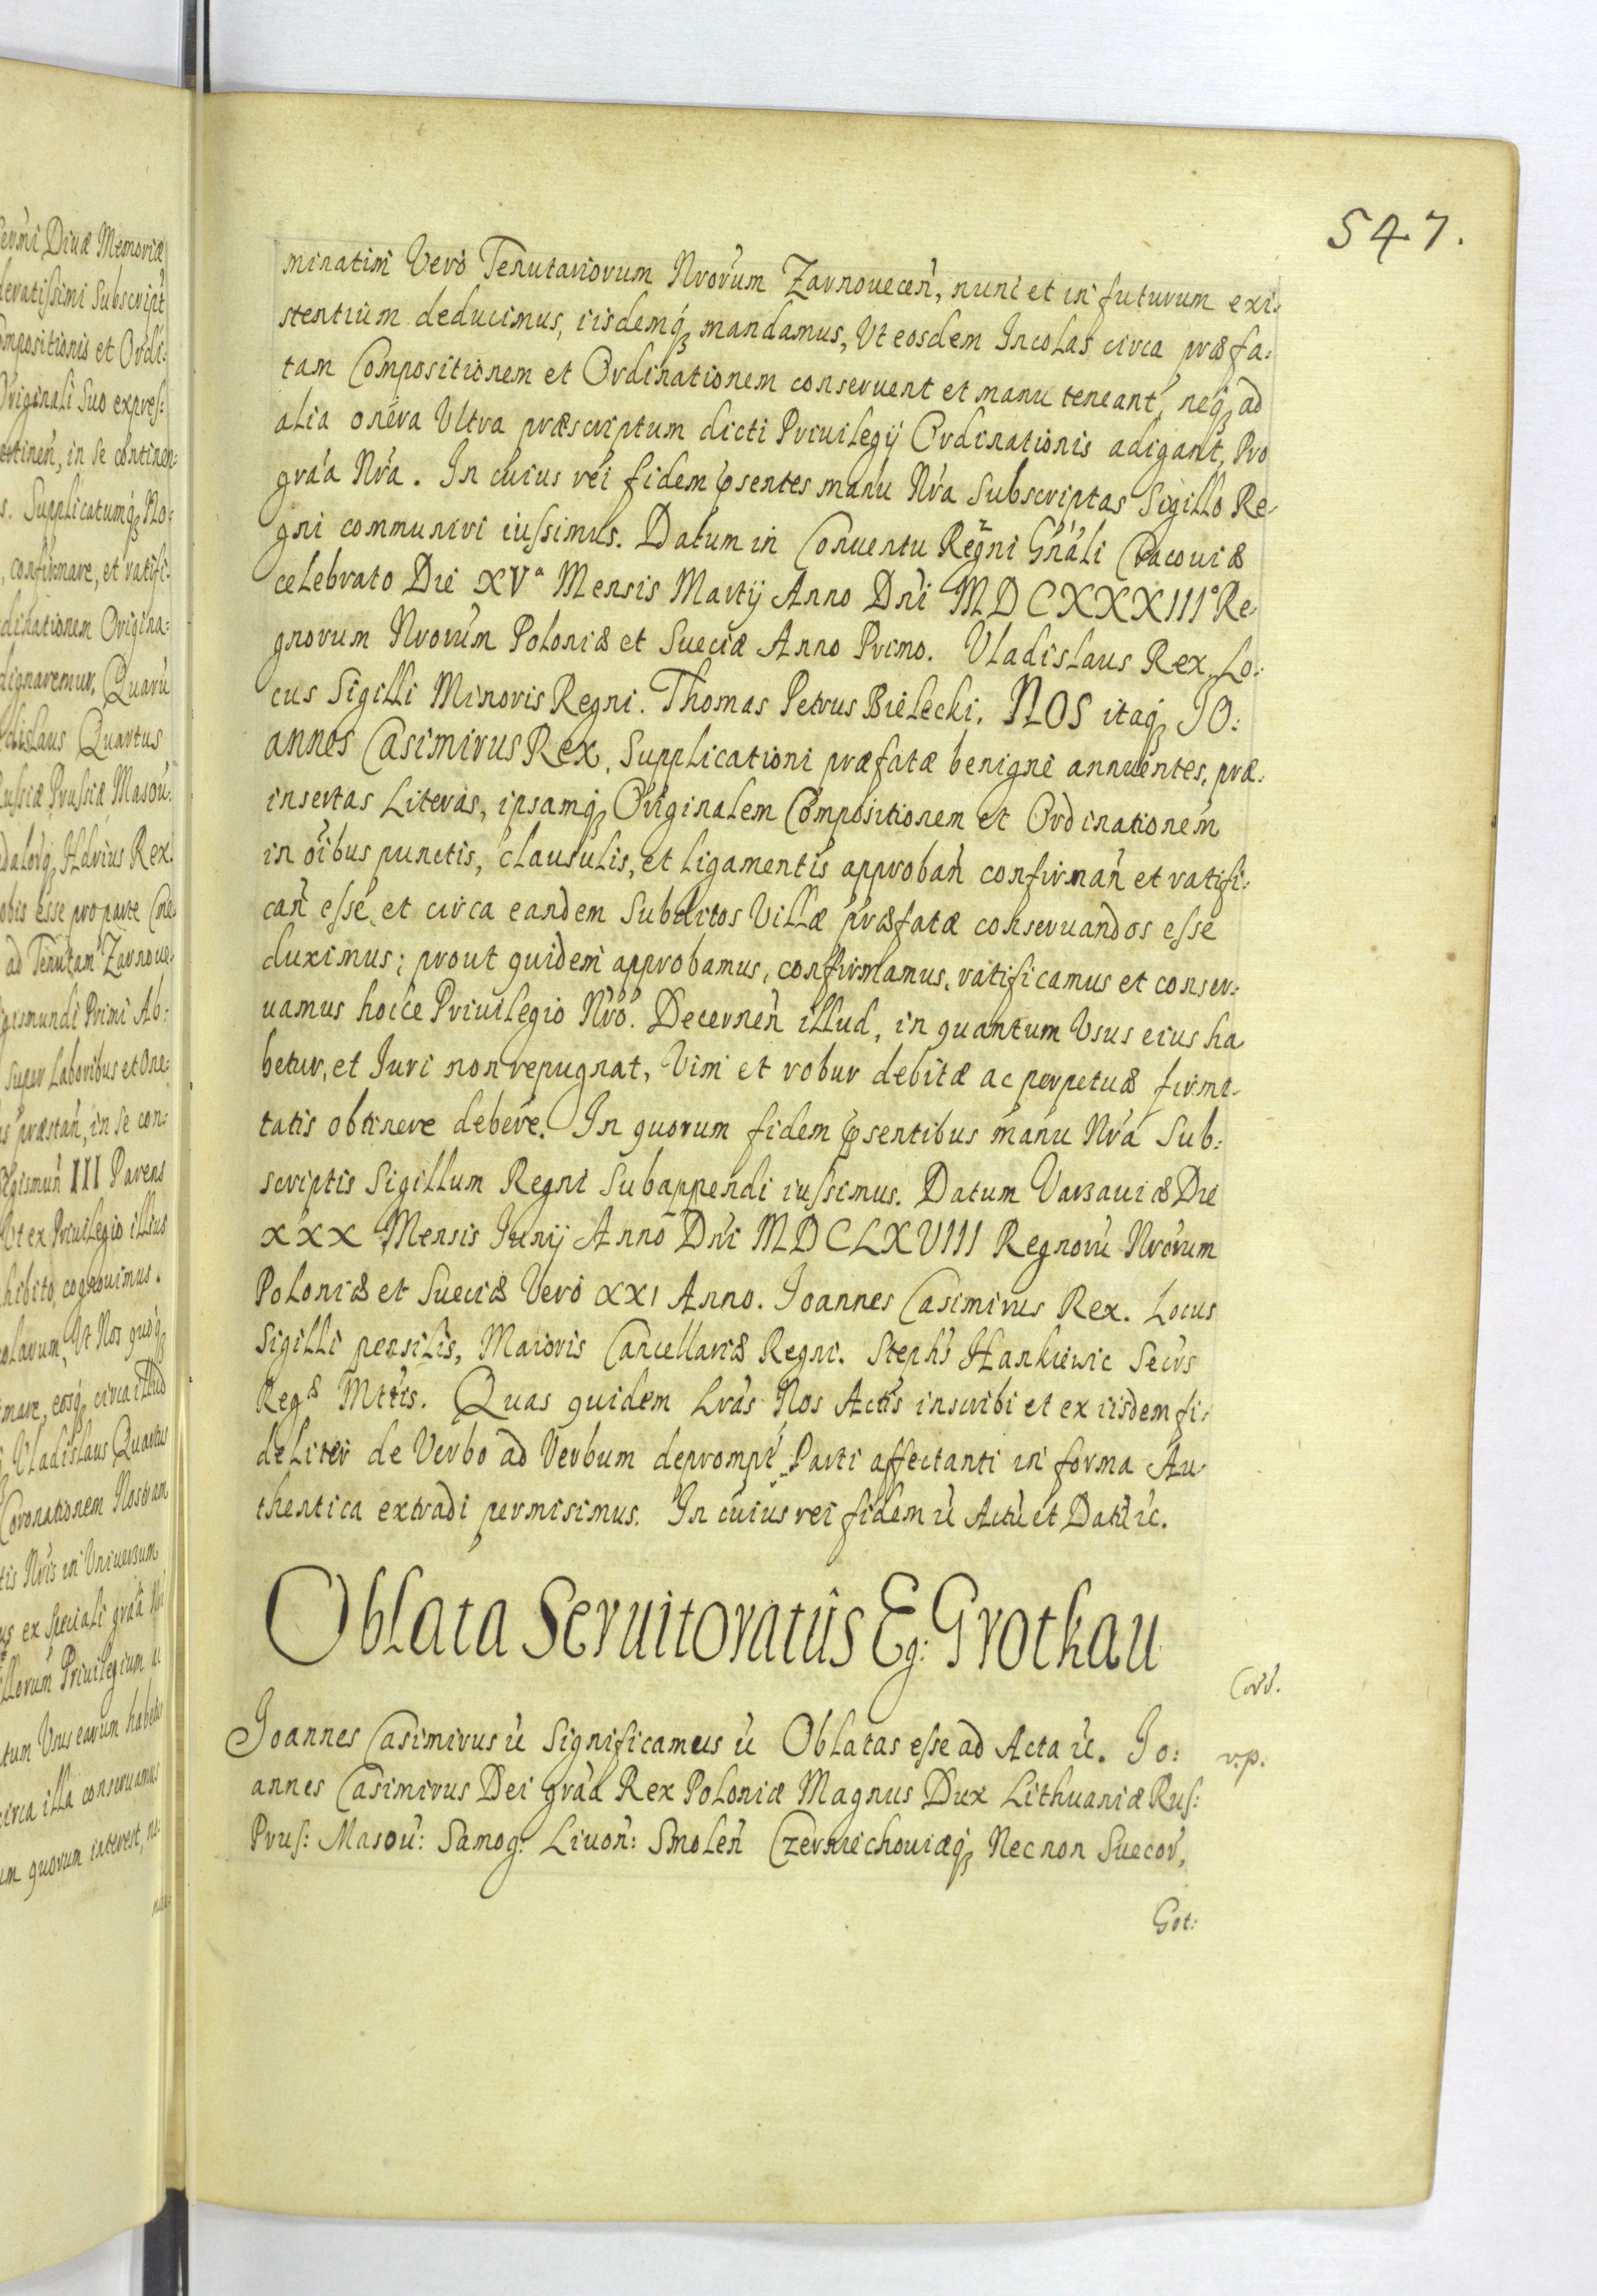 547.
minatim Vero Tenutariorum Nrorum Zarnouecen, nunc et in futurum exi:
stentium deducimus, iisdemq́ꝫ mandamus, Vt eosdem Incolas circa præfa:
tam Compositionem et Ordinationem conseruent et manu teneant, neq́ꝫ ad
alia onera Vltra præscriptum dicti Priuilegij Ordinationis adigant, Pro
gra̛a Nra̛. In cuius rei fidem p̱sentes manu Nra̛ Subscriptas Sigillo Re
gni communiri iussimus. Datum in Conuentu Regni Gńáli Cracouiæ
celebrato Die XVª Mensis Martij Anno Dńi MDCXXXIII° Re
gnorum Nrorum Poloniæ et Sueciæ Anno Primo. Vladislaus Rex, Lo:
cus Sigilli Minoris Regni. Thomas Petrus Bielecki. NOS itaq́ꝫ JO:
annes Casimirus Rex, Supplicationi præfatæ benigne annuentes, præ:
insertas Literas, ipsamq́ꝫ Originalem Compositionem et Ordinationem
in oi̅bus punctis, clausulis, et ligamentis approban̛ confirman̛ et ratifi:
can̛ esse, et circa eandem Subditos Villæ præfatæ conseruandos esse
duximus; prout quidem approbamus, confirmamus, ratificamus et conser:
uamus hocce Priuilegio Nrơ. Decernen̛ illud, in quantum Vsus eius ha
betur, et Iuri non repugnat, Vim et robur debitæ ac perpetuæ firmi:
tatis obtinere debere. In quorum fidem p̱sentibus manu Nra̛ Sub:
scriptis Sigillum Regni Subappendi iussimus. Datum Varsauiæ Die
XXX Mensis Junij Anno Dńi MDCLXVIII Regnorú Nrorum
Poloniæ et Sueciæ Vero XXI Anno. Joannes Casimirus Rex. Locus
Sigilli pensilis, Maioris Cancellariæ Regni. Steph̛s Hankiewic Secrs
Regæ Mttis. Quas quidem Lras̛ Nos Actis inscribi et ex iisdem fi:
deliter de Verbo ad Verbum depromptas Parti affectanti in forma Au
thentica extradi permisimus. In cuius rei fidem ꝛc Actú et Datú ꝛc.
Oblata Seruitoratûs Eg: Grotkau
Corr.
Joannes Casimirus ꝛc Significamus ꝛc Oblatas esse ad Acta ꝛc. Jo:
r.p.
annes Casimirus Dei gra̛a Rex Poloniæ Magnus Dux Lithuaniæ Rus:
Prus: Masou: Samog: Liuon: Smolen̛ Czerniechouiæq́ꝫ Necnon Suecor,
Got: